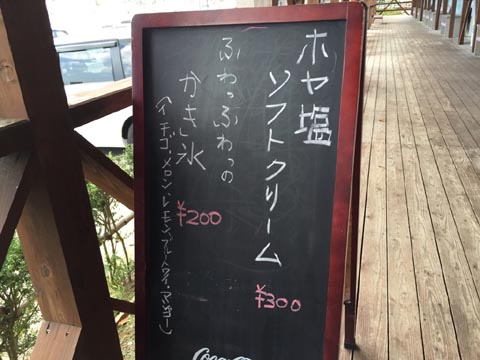 ホヤ塩
ソフトクリーム
¥300
ふわっふわっの
かき氷
¥200
(イチゴ、メロン、レモン、ブルーハワイ、マンゴー)